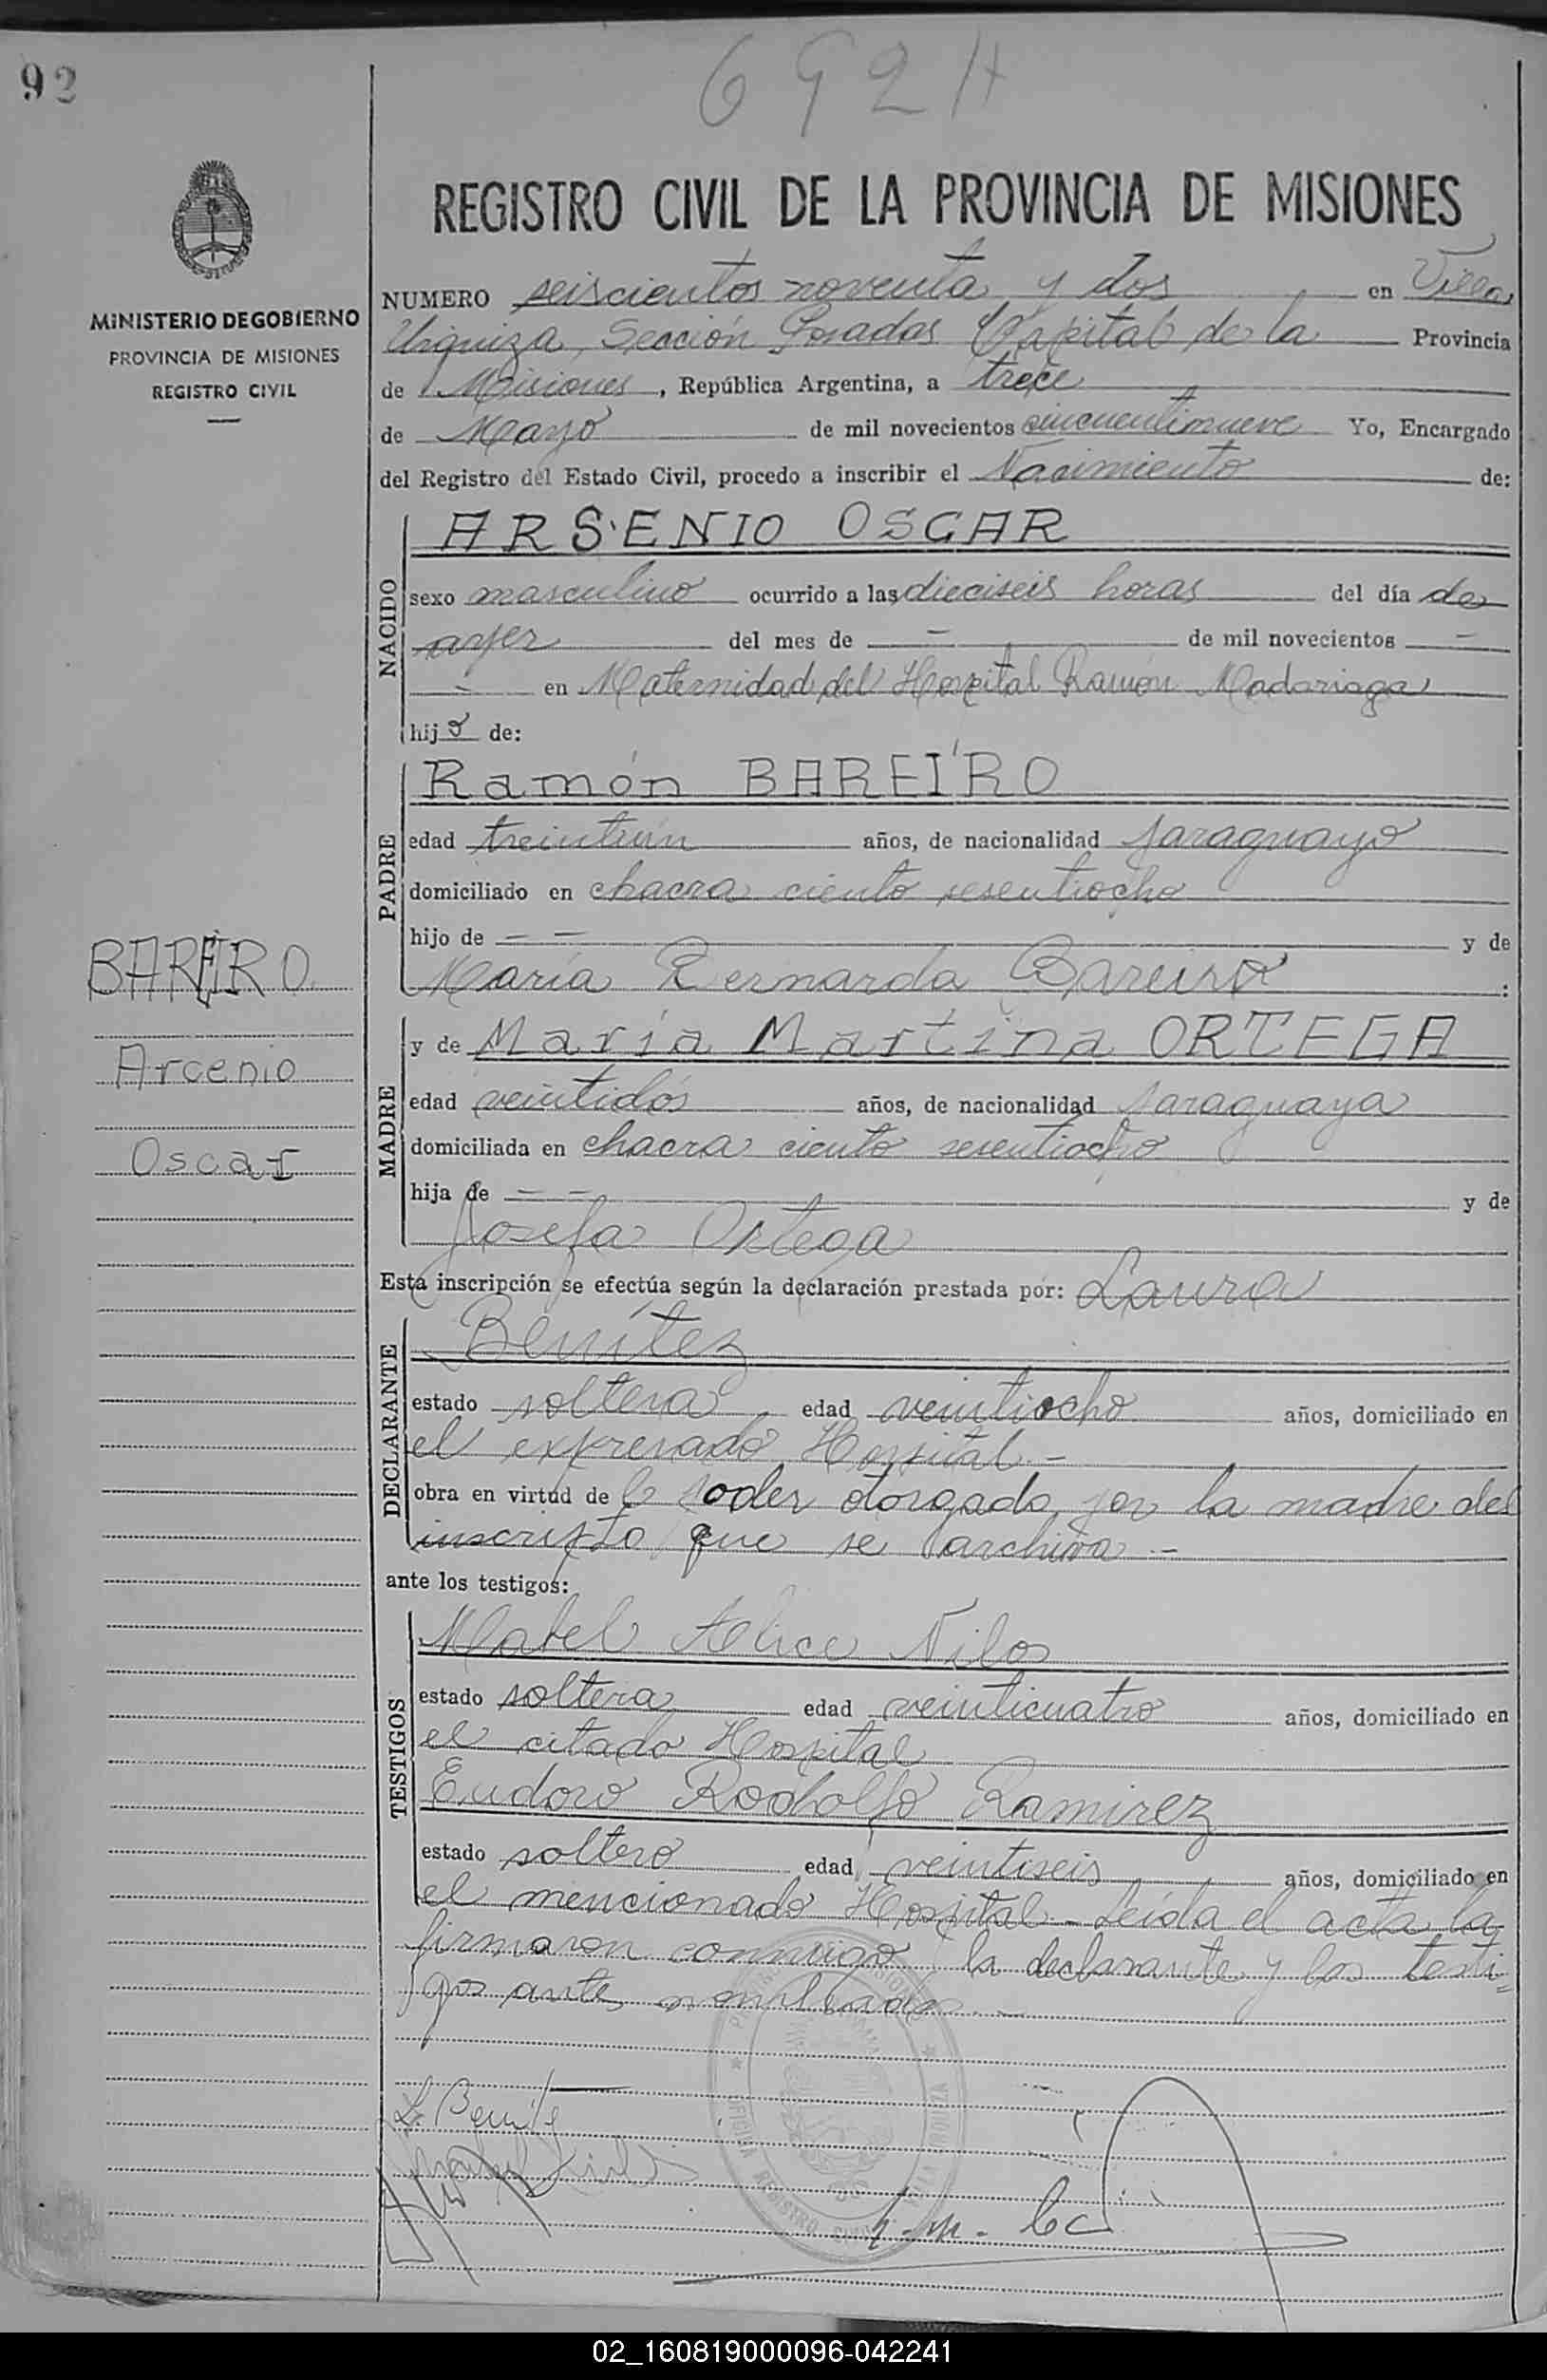 92
692 H
MINISTERIO DE GOBIERNO
PROVINCIA DE MISIONES
REGISTRO CIVIL
REGISTRO CIVIL DE LA PROVINCIA DE MISIONES
NUMERO seiscientos noventa y dos en Villa
Urquiza, Sección Posadas Capital de la Provincia
de Misiones, República Argentina, a trece
de Mayo de mil novecientos cincuentinueve Yo, Encargado
del Registro del Estado Civil, procedo a inscribir el Nacimiento de:
NACIDO
ARSENIO OSCAR
sexo masculino ocurrido a las dieciseis horas del día de
ayer del mes de — de mil novecientos —
— en Maternidad del Hospital Ramón Madariaga
hijo de:
PADRE
Ramón BAREIRO
edad treintiún años, de nacionalidad paraguayo
domiciliado en chacra ciento sesentiocho
hijo de — — y de
María Bernarda Bareiro :
BAREIRO
Arcenio
Oscar
MADRE
y de María Martina ORTEGA
edad veintidós años, de nacionalidad paraguaya
domiciliada en chacra ciento sesentiocho
hija de — — y de
Josefa Ortega
Esta inscripción se efectúa según la declaración prestada por: Laura
DECLARANTE
Benítez
estado soltera edad veintiocho años, domiciliado en
el expresado Hospital.-
obra en virtud de poder otorgado por la madre del
inscripto que se archiva.-
ante los testigos:
TESTIGOS
Mabel Alice Nilos
estado soltera edad veinticuatro años, domiciliado en
el citado Hospital
Eudoro Rodolfo Ramirez
estado soltero edad veintiseis años, domiciliado en
el mencionado Hospital.- Leída el acta la
firmaron conmigo la declarante y los testi=
gos antes nombrados.-
L. Benítez
OFICINA REGISTRO CIVIL VILLA URQUIZA
02_160819000096-042241